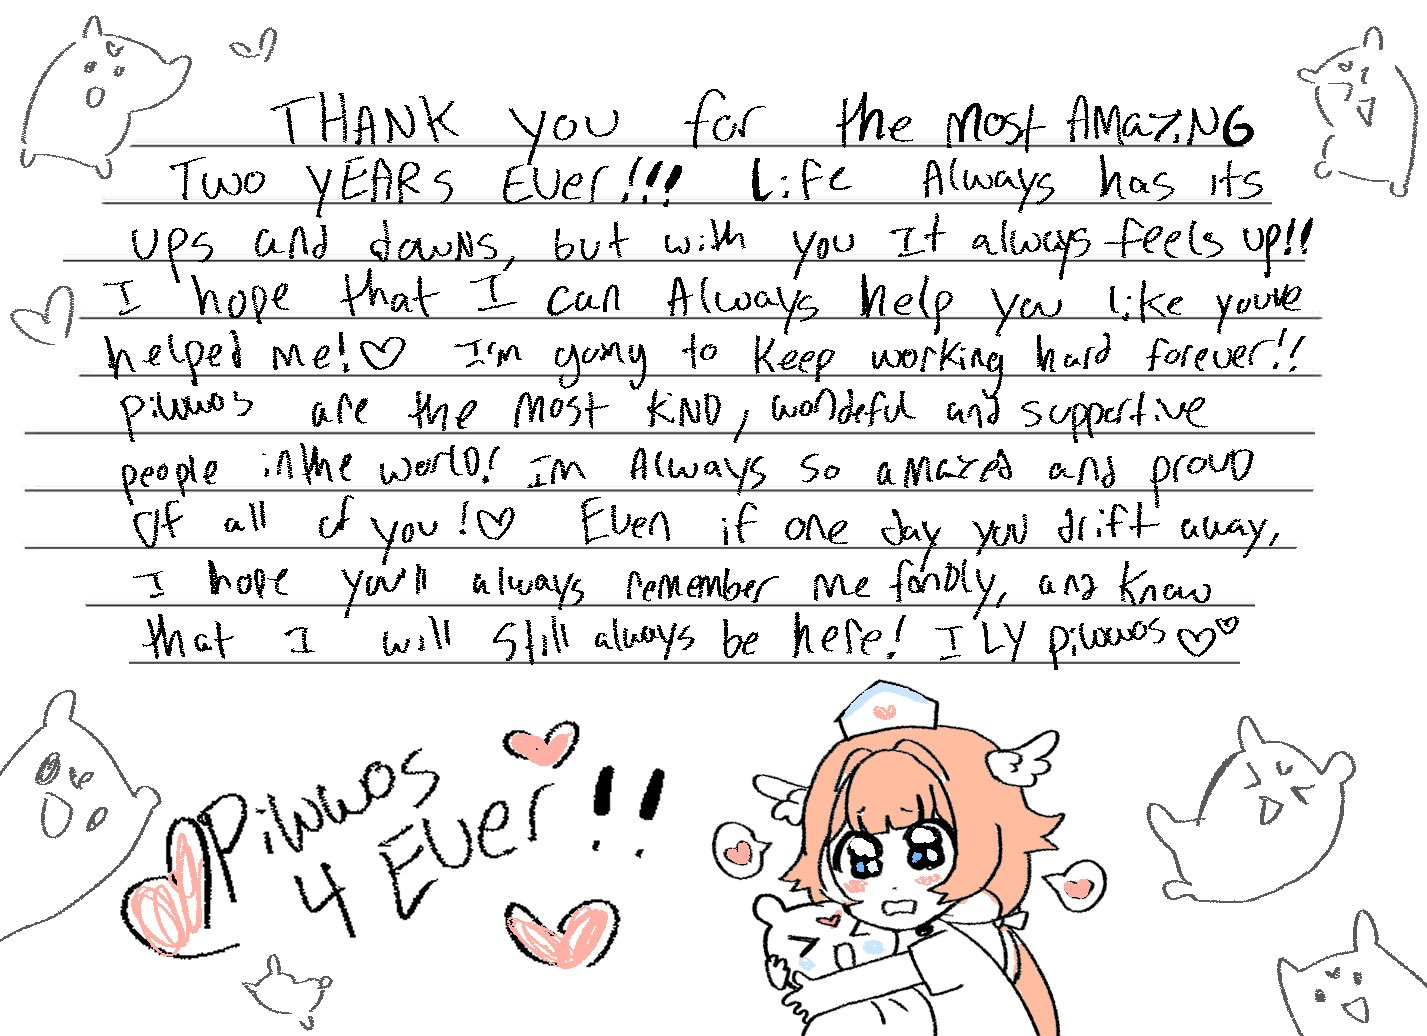 THANK you for the most AMAZING
Two YEARs EVer!!! Life Always has its
ups and downs, but with you It always feels up!!
I hope that I can Always help you like you've
helped me!♡ I'm going to keep working hard forever!!
pilwwos are the most KIND, wondeful and supportive
people in the world! Im Always so amazed and proud
of all of you!♡ Even if one day you drift away,
I hope you'll always remember me fondly, and know
that I will still always be here! I LY pilwwos♡♡
Pilwwos
4 EVer!!